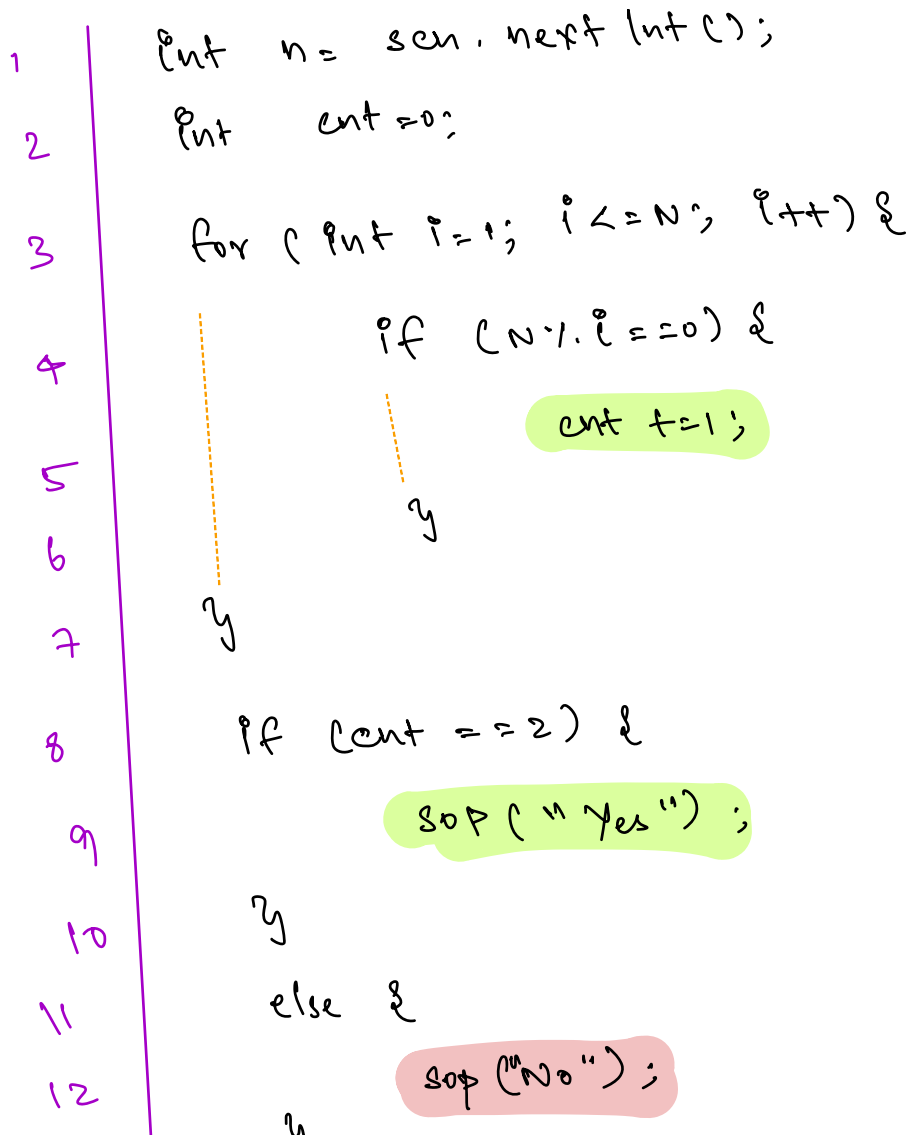 1 int n= scn.nextInt();
2 int cnt=0;
3 for (int i=1; i<=N; i++) {
4 if (N%i==0) {
cnt +=1;
5
6 }
7 }
8 if (cnt ==2) {
9 sop("Yes");
10 }
11 else {
12 sop("No");
}